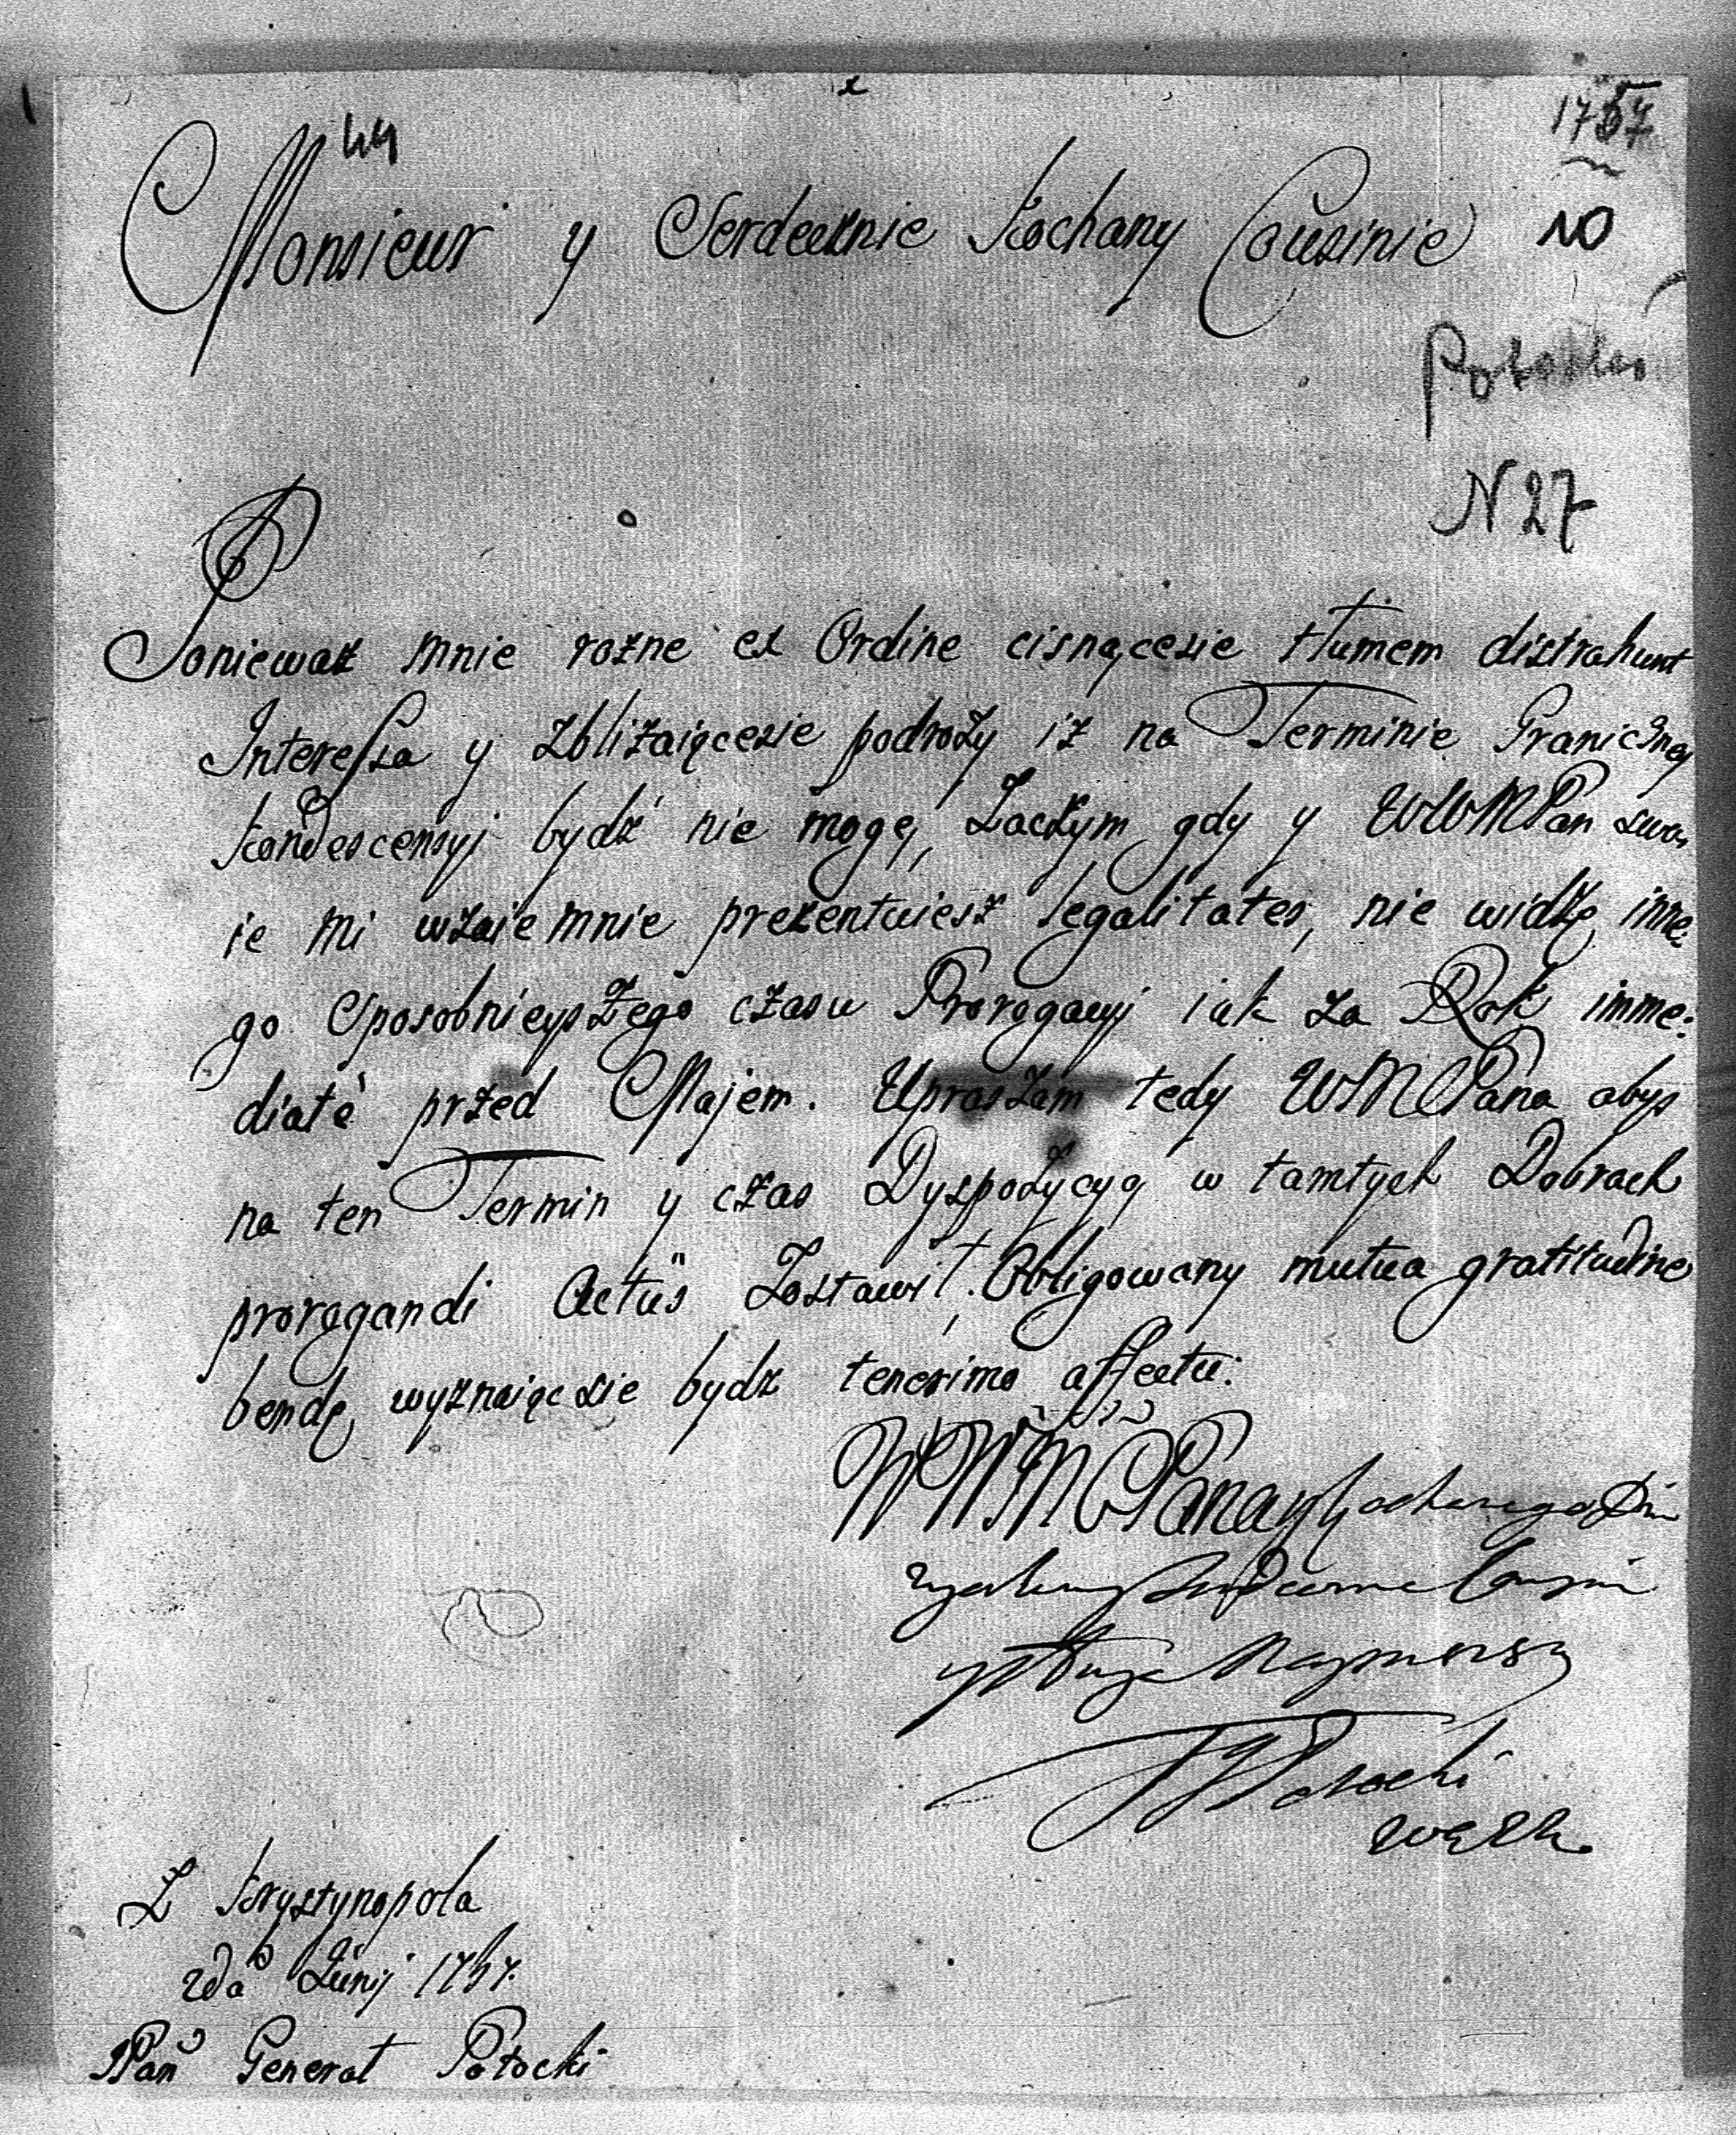 44
1757
Monsieur y Serdecznie Kochany Cousinie
10
Potocki
N 27
Poniewaz mnie rozne ex Ordine cisnącesie tłumem distrahunt
Interessa y zbliżaiącesie podroży iż na Terminie Graniczney
Kondescensyj bydź nie mogę, Zaczym gdy y WWMPan swo,
ie mi wzaiemnie prezentuiesz legalitates, nie widzę inne,
go sposobnieyszego czasu Prorogacyj iak za Rok imme:
diatè przed Majem. Upraszam tedy WMPana abyś
na ten Termin y czas Dyspozycyą w tamtych Dobrach
prorogandi Actûs Zostawił. Obligowany mutua gratitudine
bendę, wyznaiąc sie bydz tenerimo affectu:
WWM Pana y Kochanego
Zyczliwy Cousin
y sługa Nayniższy
Potocki
Z Krystynopola
2da Junij 1757.
JPan Generał Potocki